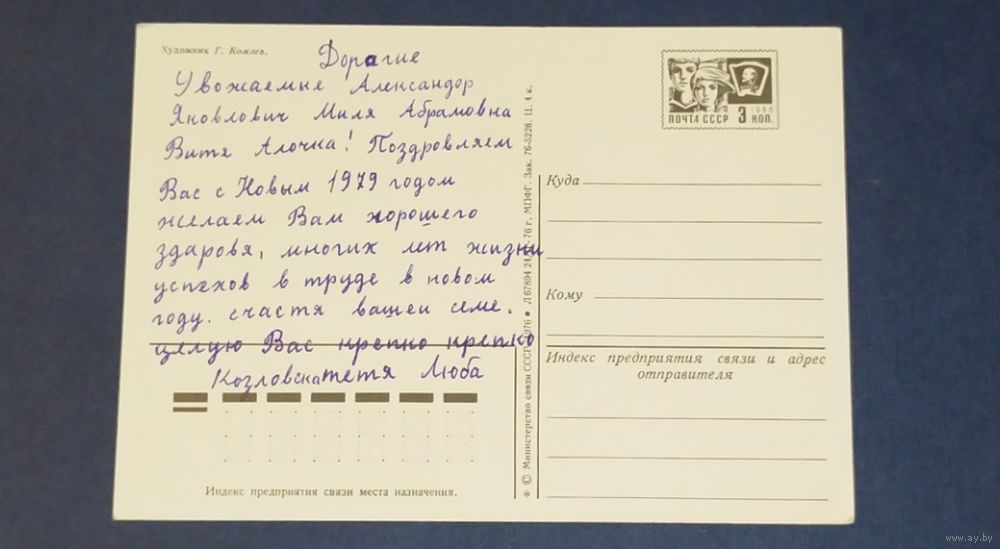 Художник Г. Комлев.
Дорагие
Уважаемые Александор
Яковлович Миля Абрамовна
Витя Алочка! Поздровляем
Вас с Новым 1979 годом
желаем Вам хорошего
здаровя, многих лет жизни
успехов в труде в новом
году. счастя вашеи семе.
целую Вас крепко крепко
Козловска тетя Люба
Индекс предприятия связи места назначения.
© Министерство связи СССР, 1976 ● Л 67894 76 г. МПФГ. Зак. 76-5228. Ц. 4 к.
1968
ПОЧТА СССР 3 КОП.
Куда
Кому
Индекс предприятия связи и адрес
отправителя
www.ay.by